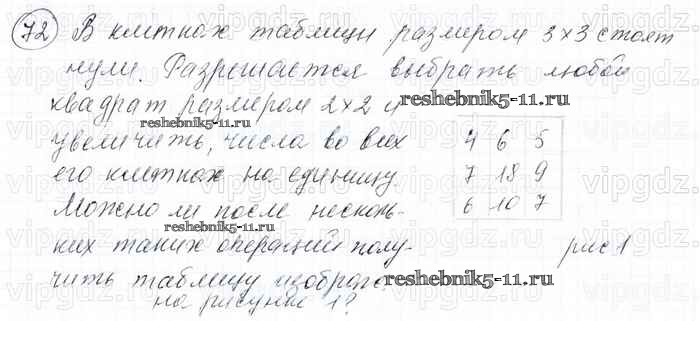 72 В клетках таблицы размером 3×3 стоят
нули. Разрешается выбрать любой
квадрат размером 2×2 и
увеличить числа во всех
его клетках на единицу.
Можно ли после несколь-
ких таких операций полу-
чить таблицу изображ
на рисунке 1?
4 6 5
7 18 9
6 10 7
рис 1
reshebnik5-11.ru
reshebnik5-11.ru
reshebnik5-11.ru
reshebnik5-11.ru
vipgdz.ru